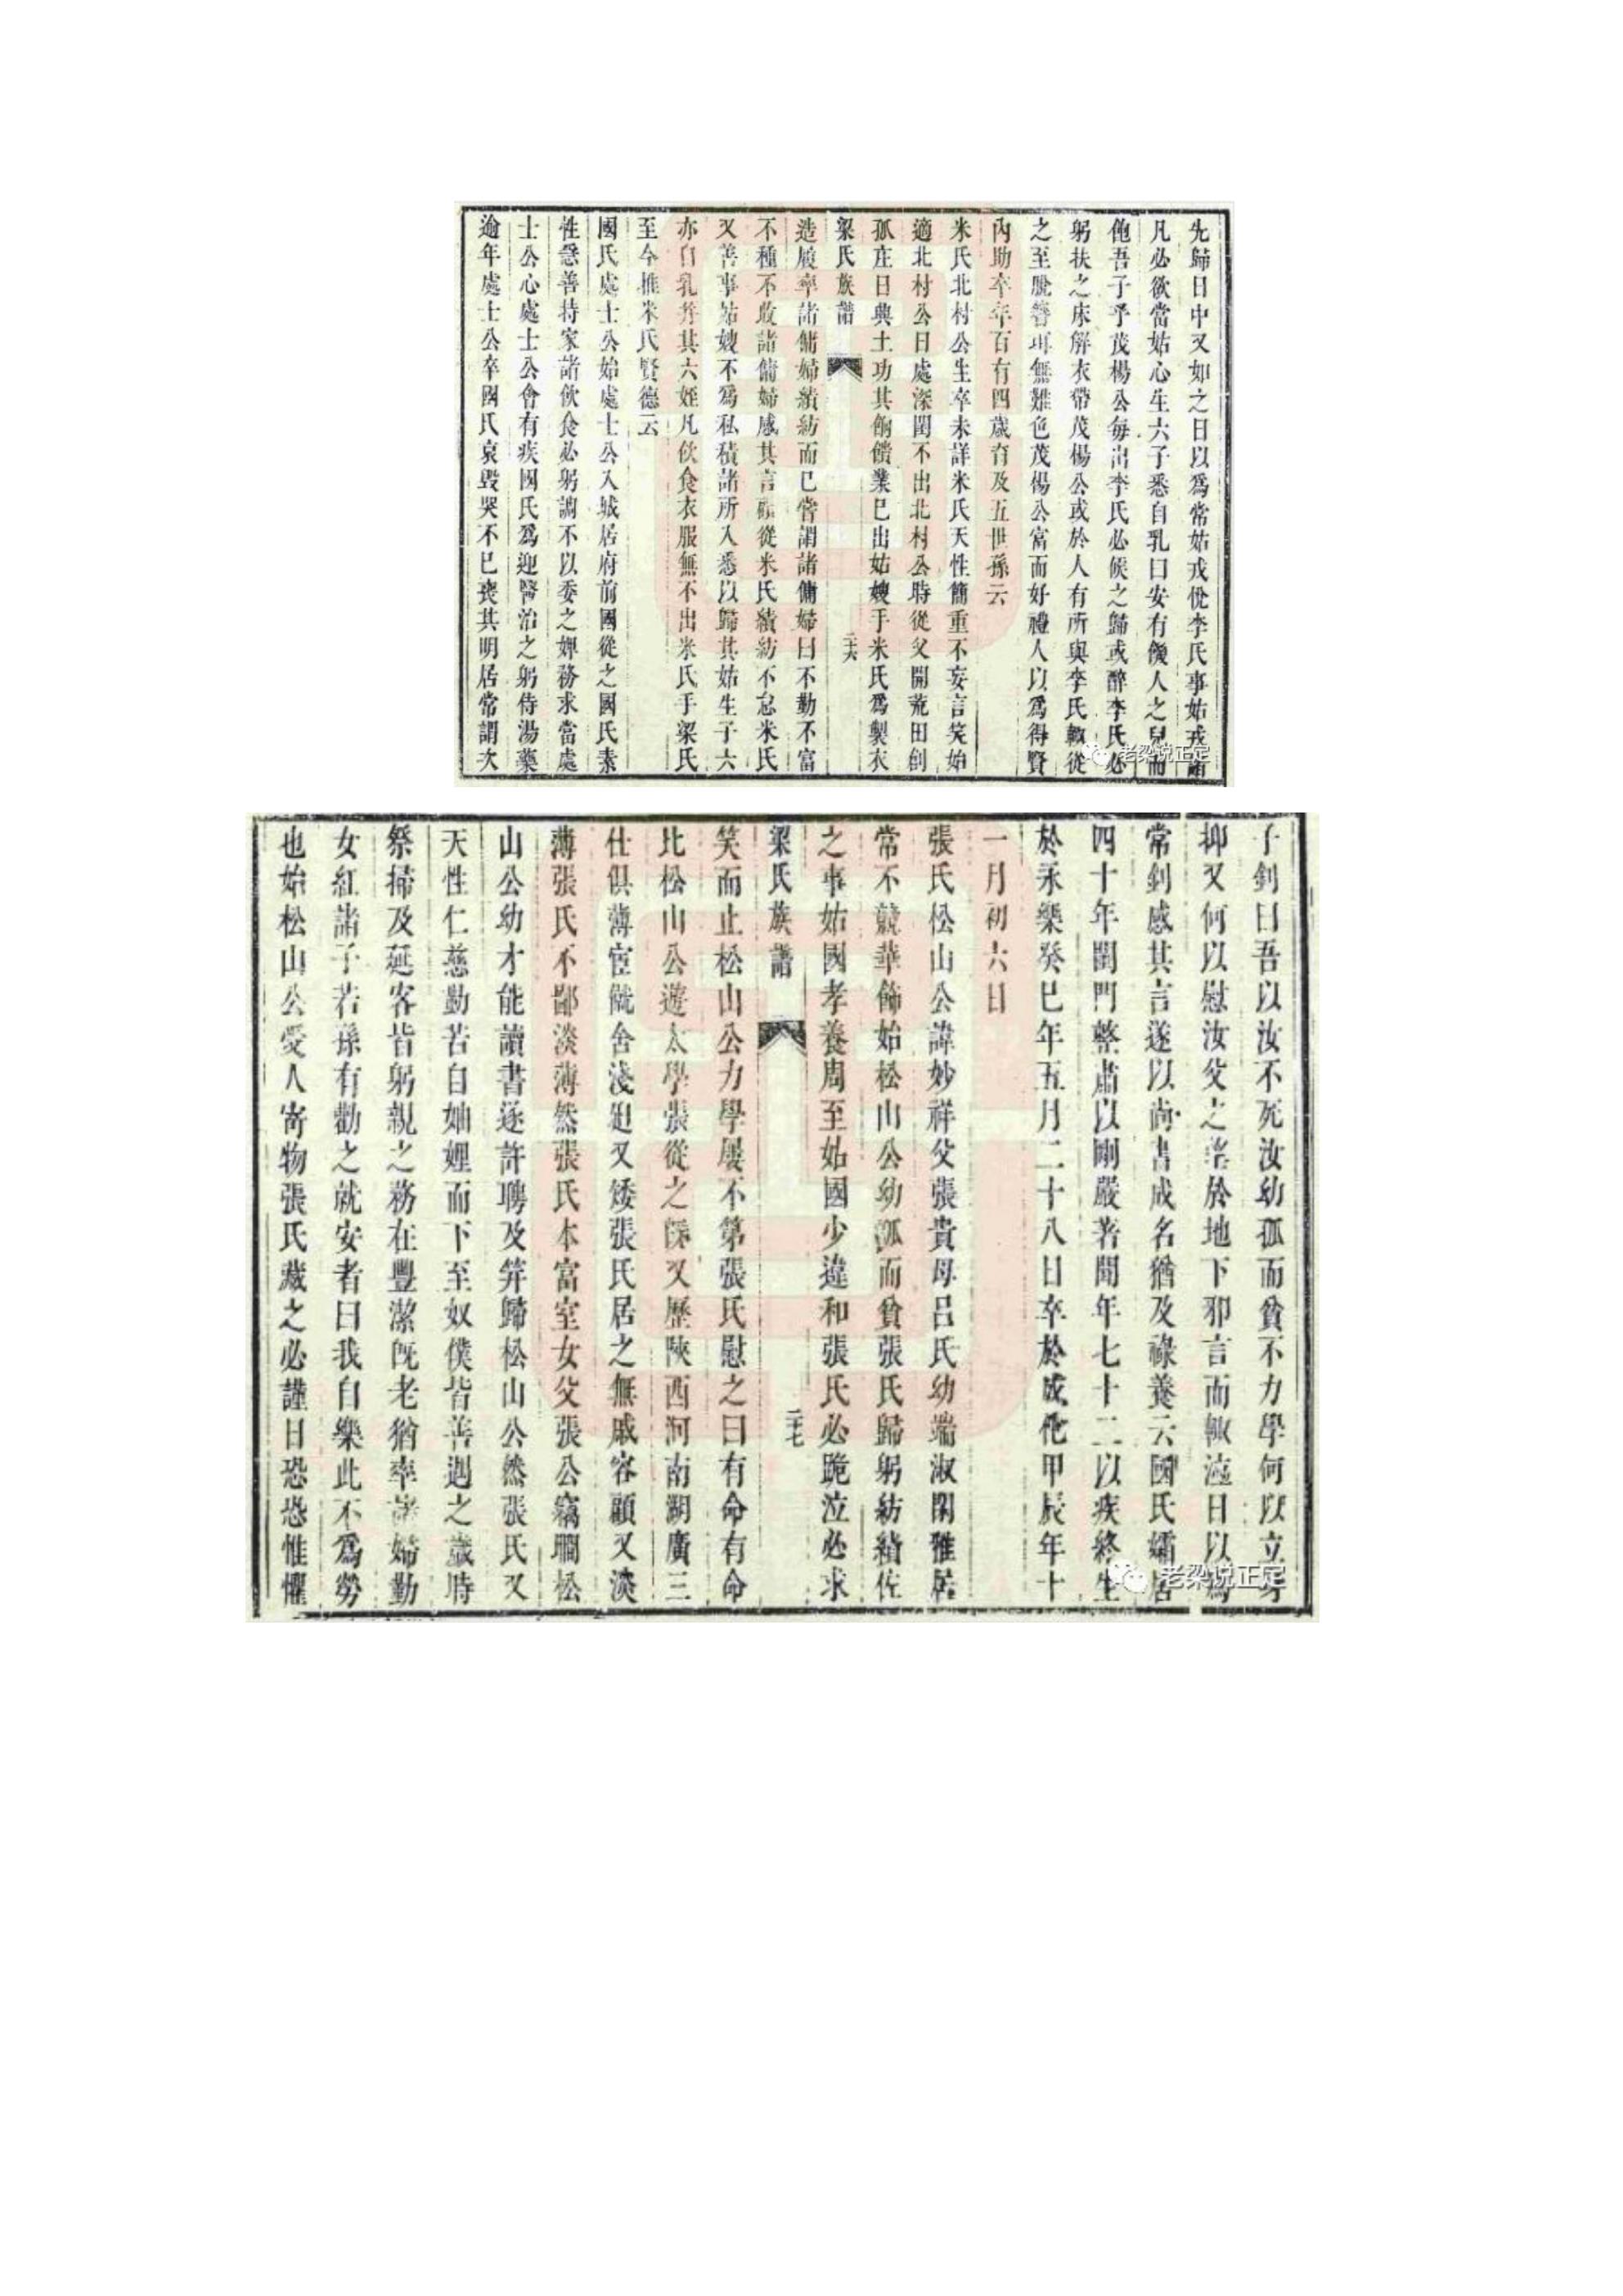 先歸日中又如之日以為常姑戎悅李氏事姑戎諸
凡必欲當姑心生六子悉自乳曰安有饑人之兒而
飽吾子乎茂楊公每出李氏必候之歸或醉李氏必
躬扶之床解衣帶茂楊公或於人有所與李氏輙從
之至脫簪珥無難色茂楊公富而好禮人以為得賢
內助卒年百有四歲育及五世孫云
米氏北村公生卒未詳米氏天性簡重不妄言笑始
適北村公日處深閨不出北村公時從父開荒田創
孤庄日與土功其餉饋業已出姑嫂手米氏爲製衣
梁氏族譜
二十六
造履率諸傭婦績紡而已嘗謂諸傭婦曰不勤不富
不種不收諸傭婦感其言願從米氏績紡不怠米氏
又善事姑嫂不爲私積諸所入悉以歸其姑生子六
亦自乳并其六姪凡飲食衣服無不出米氏手梁氏
至今推米氏賢德云
國氏處士公始處士公入城居府前國從之國氏素
性急善持家諸飲食必躬調不以委之婢務求當處
士公心處士公會有疾國氏爲迎醫治之躬侍湯藥
逾年處士公卒國氏哀毀哭不已喪其明居常謂次
老梁说正定
子釗曰吾以汝不死汝幼孤而貧不力學何以立身
抑又何以慰汝父之 於地下邪言而輙泣日以爲
常釗感其言遂以尚書成名猶及祿養云國氏孀居
四十年閨門整肅以剛嚴著聞年七十二以疾終生
於永樂癸巳年五月二十八日卒於成化甲辰年十
一月初六日
張氏松山公諱妙祥父張貴母呂氏幼端淑閑雅居
常不競華飾始松山公幼孤而貧張氏歸躬紡績佐
之事姑國孝養周至姑國少違和張氏必跪泣必求
梁氏族譜
二十七
笑而止松山公力學屡不第張氏慰之曰有命有命
比松山公遊太學張從之 又歷陝西河南湖廣三
仕俱薄宦僦舍淺廹又矮張氏居之無戚容顧又淡
薄張氏不鄙淡薄然張氏本富室女父張公竊瞷松
山公幼才能讀書遂許聘及笄歸松山公然張氏又
天性仁慈勤苦自妯娌而下至奴僕皆善遇之歲時
祭掃及延客皆躬親之務在豐潔旣老猶率諸婦勤
女紅諸子若孫有勸之就安者曰我自樂此不爲勞
也始松山公受人寄物張氏藏之必謹日恐恐惟懼
老梁说正定